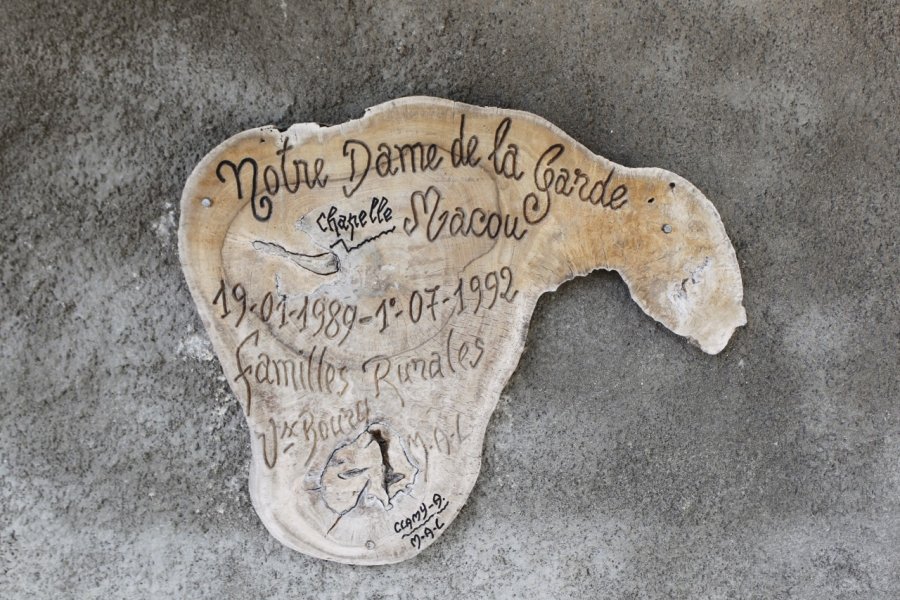 Notre Dame de la Garde
Chapelle Macou
19-01-1989-1°-07-1992
Familles Rurales
Vx Bourg M-A-L
CLAMY-A.
M-A-L